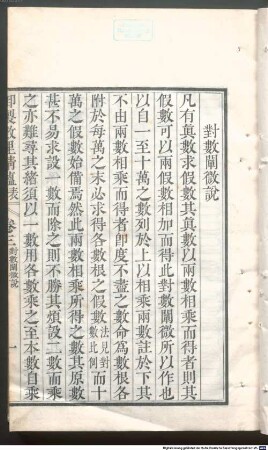 對數闡微說
凡有真數求假數其真數以兩數相乘而得者則其
假數可以兩假數相加而得此對數闡微所以作也
以自一至十萬之數列於上以相乘兩數註於下其
不由兩數相乘而得者即度不盡之數命為數根各
附於每萬之末必求得各數根之假數法見對數比例而十
萬之假數始備焉然此兩數相乘所得之數其原數
甚不易求設一數而除之則不勝其煩設二數而乘
之亦難尋其緒須以一數用各數乘之至本數自乘
御製數理精蘊表 卷三對數闡微說 一